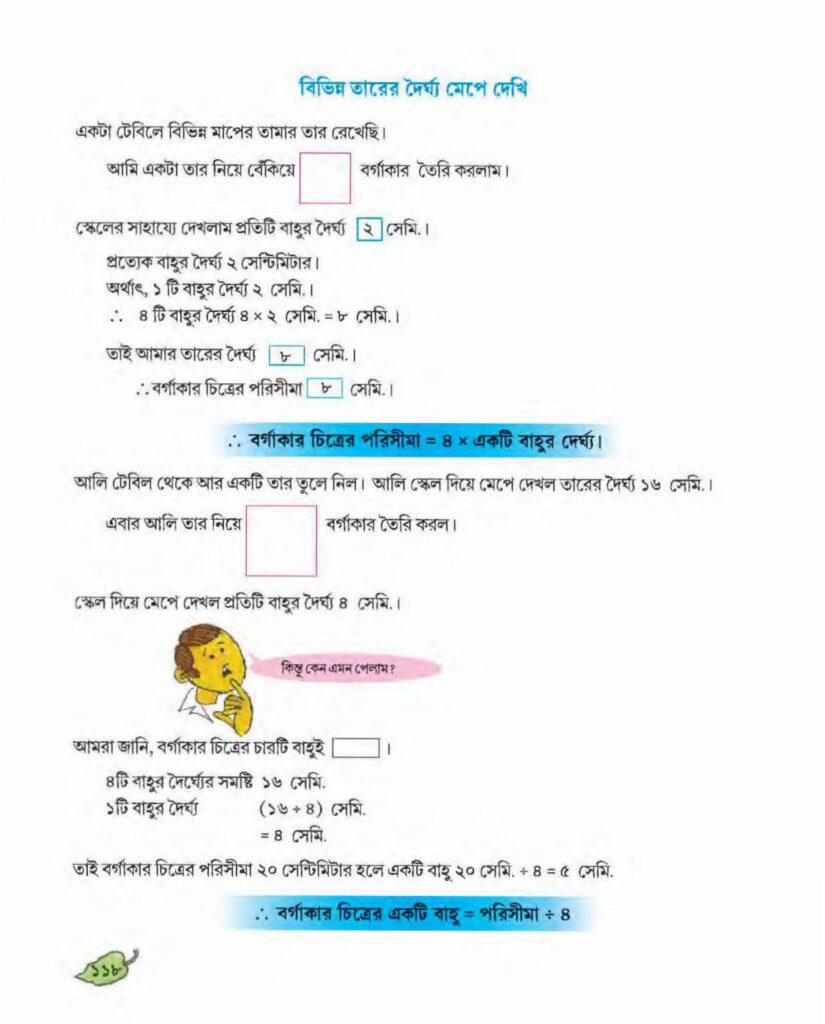 বিভিন্ন তারের দৈর্ঘ্য মেপে দেখি
একটা টেবিলে বিভিন্ন মাপের তামার তার রেখেছি।
আমি একটা তার নিয়ে বেঁকিয়ে বর্গাকার তৈরি করলাম।
স্কেলের সাহায্যে দেখলাম প্রতিটি বাহুর দৈর্ঘ্য ২ সেমি.।
প্রত্যেক বাহুর দৈর্ঘ্য ২ সেন্টিমিটার।
অর্থাৎ, ১ টি বাহুর দৈর্ঘ্য ২ সেমি.।
∴ ৪ টি বাহুর দৈর্ঘ্য ৪ × ২ সেমি. = ৮ সেমি.।
তাই আমার তারের দৈর্ঘ্য ৮ সেমি.।
∴ বর্গাকার চিত্রের পরিসীমা ৮ সেমি.।
∴ বর্গাকার চিত্রের পরিসীমা = ৪ × একটি বাহুর দের্ঘ্য।
আলি টেবিল থেকে আর একটি তার তুলে নিল। আলি স্কেল দিয়ে মেপে দেখল তারের দৈর্ঘ্য ১৬ সেমি.।
এবার আলি তার নিয়ে বর্গাকার তৈরি করল।
স্কেল দিয়ে মেপে দেখল প্রতিটি বাহুর দৈর্ঘ্য ৪ সেমি.।
কিন্তু কেন এমন পেলাম?
আমরা জানি, বর্গাকার চিত্রের চারটি বাহুই ।
৪টি বাহুর দৈর্ঘ্যের সমষ্টি ১৬ সেমি.
১টি বাহুর দৈর্ঘ্য (১৬ ÷ ৪) সেমি.
= ৪ সেমি.
তাই বর্গাকার চিত্রের পরিসীমা ২০ সেন্টিমিটার হলে একটি বাহু ২০ সেমি. ÷ ৪ = ৫ সেমি.
∴ বর্গাকার চিত্রের একটি বাহু = পরিসীমা ÷ ৪
১১৮